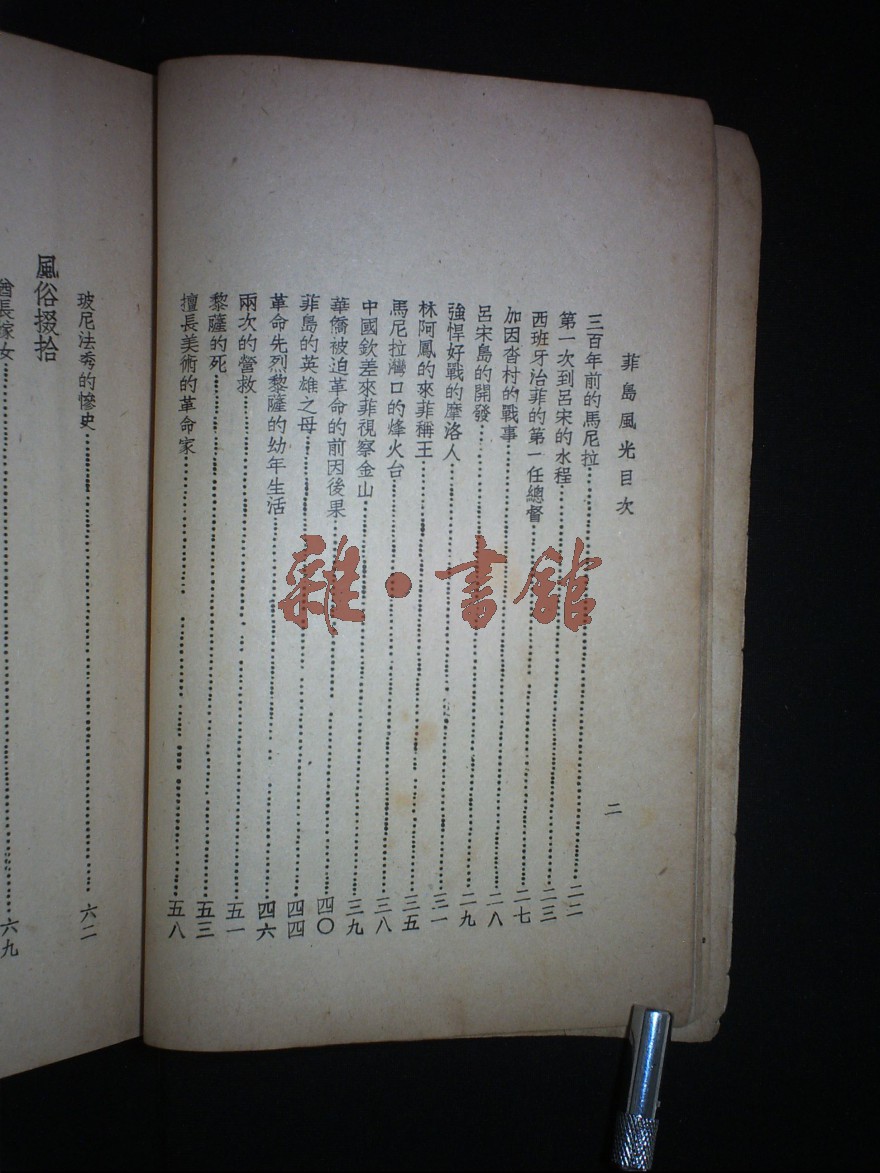 菲島風光目次
二
三百年前的馬尼拉……二二
第一次到呂宋的水程……二三
西班牙治菲的第一任總督……二七
加因沓村的戰事……二八
呂宋島的開發……二九
強悍好戰的摩洛人……三一
林阿鳳的來菲稱王……三五
馬尼拉灣口的烽火台……三八
中國欽差來菲視察金山……三九
華僑被迫革命的前因後果……四〇
菲島的英雄之母……四四
革命先烈黎薩的幼年生活……四六
兩次的營救……五一
黎薩的死……五三
擅長美術的革命家……五八
玻尼法秀的慘史……六二
風俗掇拾
酋長嫁女……六九
雜·書館